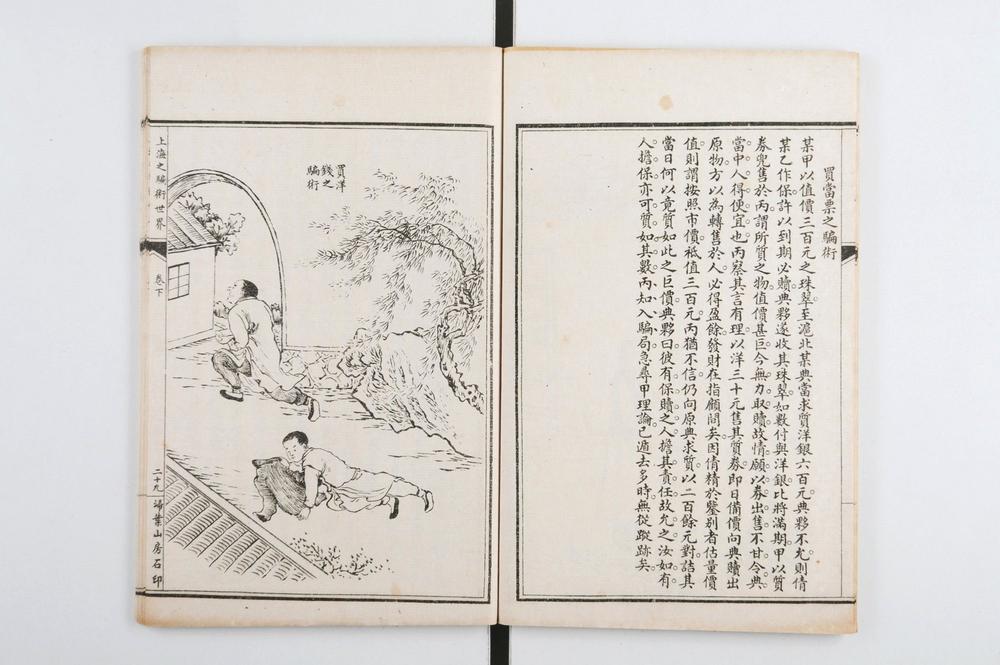 買當票之騙術
某甲以值價三百元之珠翠至滬北某典當求質洋銀六百元典夥不允則倩
某乙作保許以到期必贖典夥遂收其珠翠如數付與洋銀比將滿期甲以質
券兜售於丙謂所質之物值價甚巨今無力取贖故情願以券出售不甘令典
當中人得便宜也丙察其言有理以洋三十元售其質券即日備價向典贖出
原物方以為轉售於人必得盈餘發財在指顧間矣因倩精於鑒別者估量價
值則謂按照市價祗值三百元丙猶不信仍向原典求質以二百餘元對詰其
當日何以竟質如此之巨價典夥曰彼有保贖之人擔其責任故允之汝如有
人擔保亦可質如其數丙知入騙局急尋甲理論已遁去多時無從蹤跡矣
買洋
錢之
騙術
上海之騙術世界
卷下
二十九
掃葉山房石印